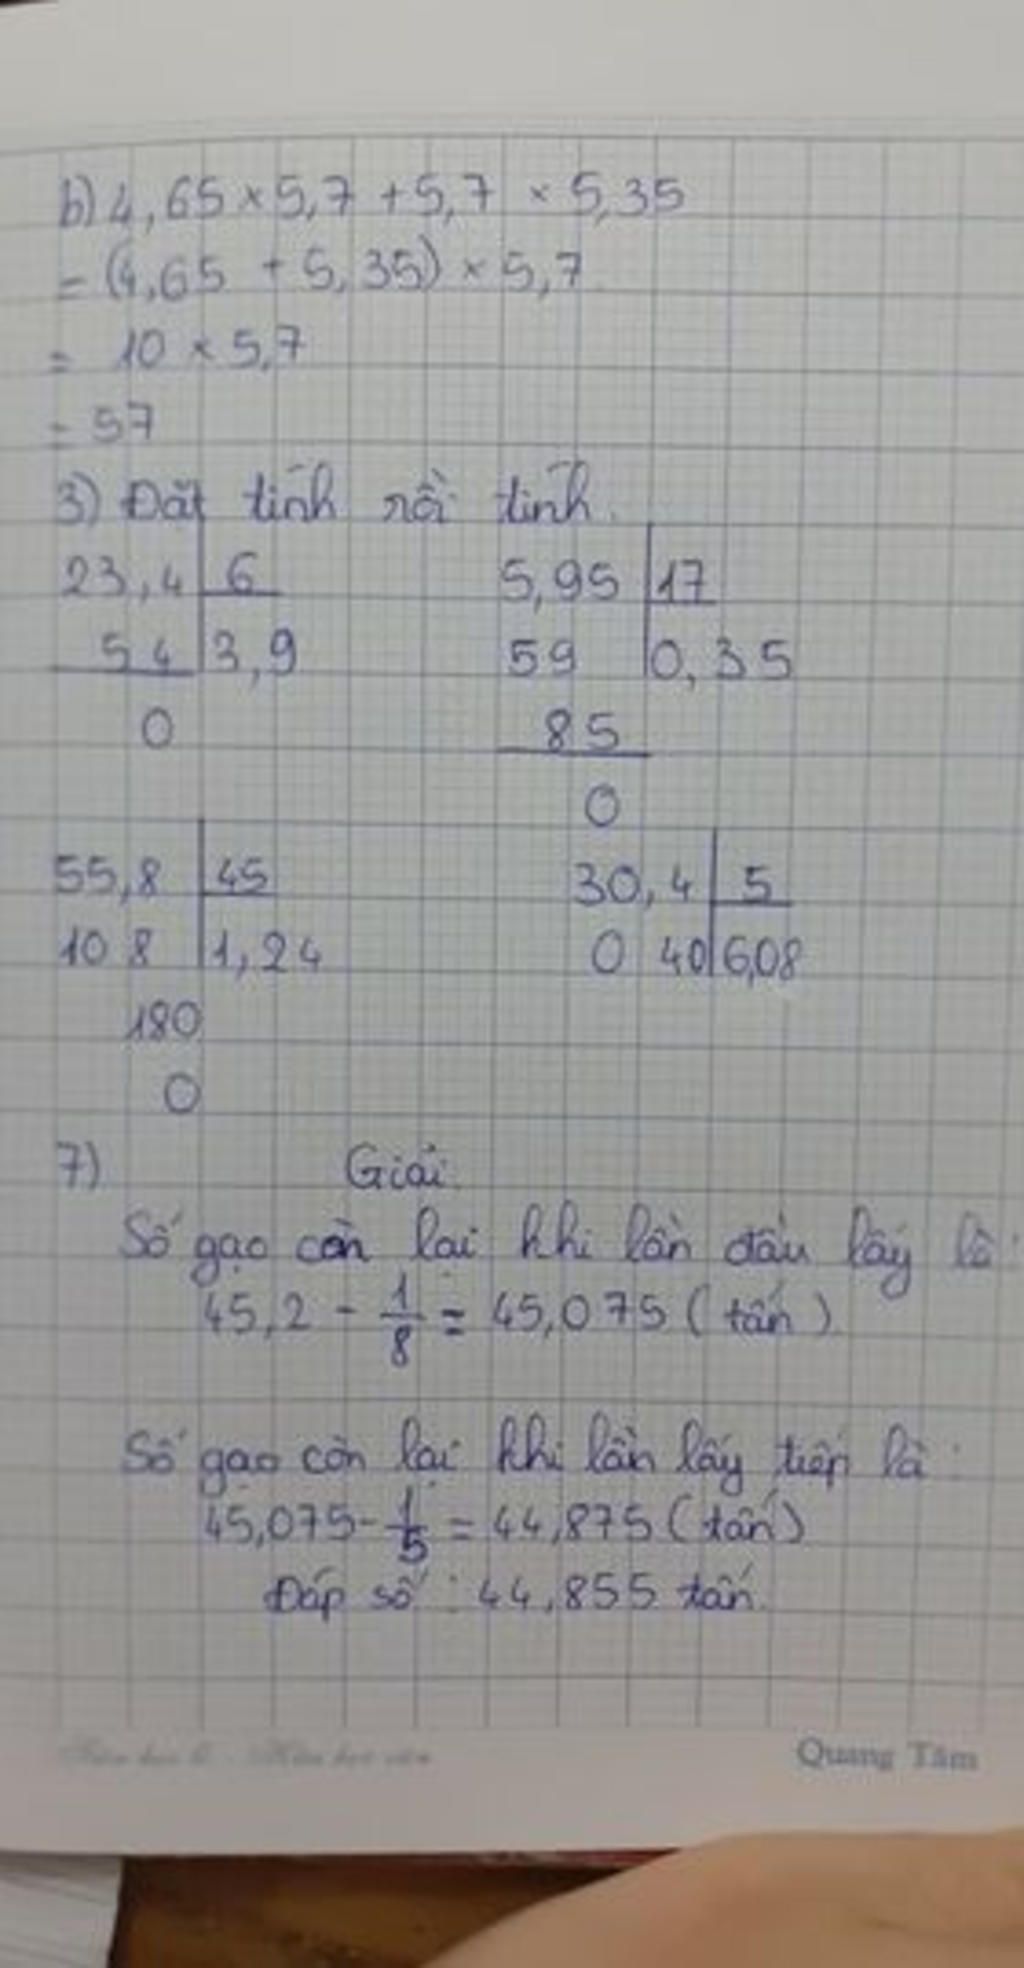 b) 4,65 × 5,7 + 5,7 × 5,35
= (4,65 + 5,35) × 5,7
= 10 × 5,7
= 57
3) Đặt tính rồi tính.
23,4 | 6
54 | 3,9
0
5,95 | 17
59 | 0,35
85
0
55,8 | 45
10 8 | 1,24
180
0
30,4 | 5
0 40 | 6,08
7) Giải.
Số gạo còn lại khi lần đầu lấy là:
45,2 - 1/8 = 45,075 (tấn)
Số gạo còn lại khi lần lấy tiếp là:
45,075 - 1/5 = 44,875 (tấn)
Đáp số: 44,855 tấn.
Quang Tâm